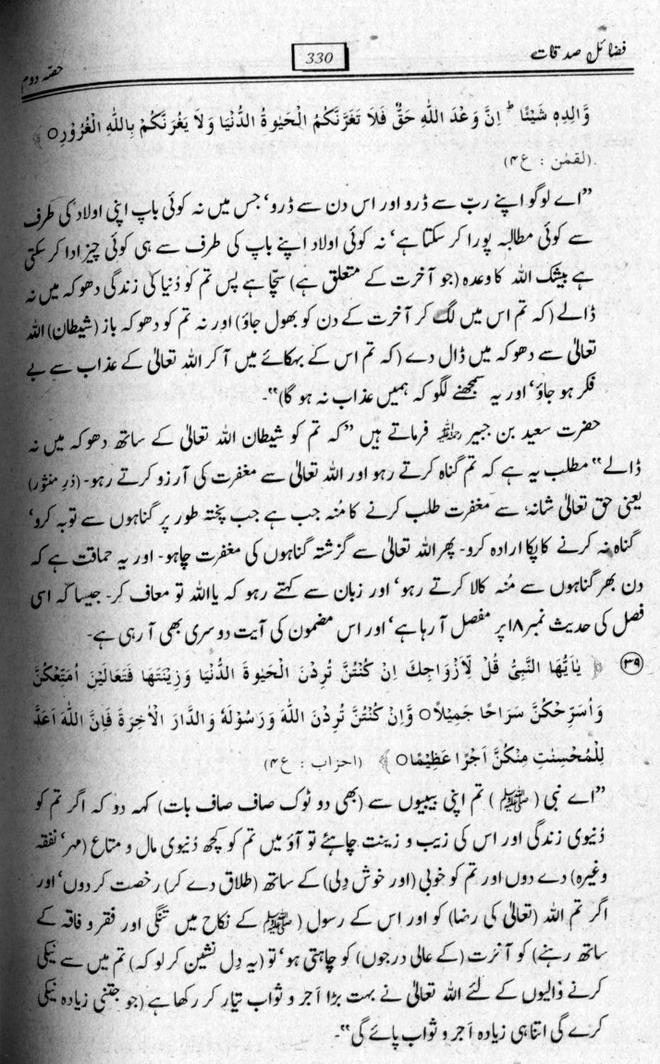 فضائل صدقات 330 حصّہ دوم
وَّالِدِہٖ شَیْئًا ؕ اِنَّ وَعْدَ اللّٰہِ حَقٌّ فَلَا تَغُرَّنَّکُمُ الْحَیٰوۃُ الدُّنْیَا وَلَا یَغُرَّنَّکُمْ بِاللّٰہِ الْغَرُوْرُ○ ﴾
(لقمٰن : ع۴)
”اے لوگو اپنے ربّ سے ڈرو اور اس دن سے ڈرو‘ جس میں نہ کوئی باپ اپنی اولاد کی طرف
سے کوئی مطالبہ پورا کر سکتا ہے‘ نہ کوئی اولاد اپنے باپ کی طرف سے ہی کوئی چیز ادا کر سکتی
ہے بیشک اللہ کا وعدہ (جو آخرت کے متعلق ہے) سچّا ہے پس تم کو دُنیا کی زندگی دھوکہ میں نہ
ڈالے (کہ تم اس میں لگ کر آخرت کے دن کو بھول جاؤ) اور نہ تم کو دھوکہ باز (شیطان) اللہ
تعالیٰ سے دھوکہ میں ڈال دے (کہ تم اس کے بہکائے میں آ کر اللہ تعالیٰ کے عذاب سے بے
فکر ہو جاؤ‘ اور یہ سمجھنے لگو کہ ہمیں عذاب نہ ہو گا)“۔
حضرت سعید بن جبیر ؓ فرماتے ہیں ”کہ تم کو شیطان اللہ تعالیٰ کے ساتھ دھوکہ میں نہ
ڈالے“ مطلب یہ ہے کہ تم گناہ کرتے رہو اور اللہ تعالیٰ سے مغفرت کی آرزو کرتے رہو۔ (دُرِ منثور)
یعنی حق تعالیٰ شانہٗ سے مغفرت طلب کرنے کا مُنہ جب ہے جب پختہ طور پر گناہوں سے توبہ کرو‘
گناہ نہ کرنے کا پکا ارادہ کرو۔ پھر اللہ تعالیٰ سے گزشتہ گناہوں کی مغفرت چاہو۔ اور یہ حماقت ہے کہ
دن بھر گناہوں سے مُنہ کالا کرتے رہو‘ اور زبان سے کہتے رہو کہ یااللہ تو معاف کر۔ جیسا کہ اسی
فصل کی حدیث نمبر ۱۸ پر مفصل آ رہا ہے‘ اور اس مضمون کی آیت دوسری بھی آ رہی ہے۔
(۳۹) ﴿ یٰاَیُّھَا النَّبِیُّ قُلْ لِّاَزْوَاجِکَ اِنْ کُنْتُنَّ تُرِدْنَ الْحَیٰوۃَ الدُّنْیَا وَزِیْنَتَھَا فَتَعَالَیْنَ اُمَتِّعْکُنَّ
وَاُسَرِّحْکُنَّ سَرَاحًا جَمِیْلًا○ وَاِنْ کُنْتُنَّ تُرِدْنَ اللّٰہَ وَرَسُوْلَہٗ وَالدَّارَ الْاٰخِرَۃَ فَاِنَّ اللّٰہَ اَعَدَّ
لِلْمُحْسِنٰتِ مِنْکُنَّ اَجْرًا عَظِیْمًا○ ﴾ (احزاب : ع۴)
”اے نبی (ﷺ) تم اپنی بیبیوں سے (بھی دو ٹوک صاف صاف بات) کہہ دو کہ اگر تم کو
دُنیوی زندگی اور اس کی زیب و زینت چاہئے تو آؤ میں تم کو کچھ دُنیوی مال و متاع (مہر‘ نفقہ
وغیرہ) دے دوں اور تم کو خوبی (اور خوش دِلی) کے ساتھ (طلاق دے کر) رخصت کر دوں‘ اور
اگر تم اللہ (تعالیٰ کی رضا) کو اور اس کے رسول (ﷺ کے نکاح میں تنگی اور فقر و فاقہ کے
ساتھ رہنے) کو آخرت (کے عالی درجوں) کو چاہتی ہو‘ تو (یہ دِل نشین کر لو کہ) تم میں سے نیکی
کرنے والیوں کے لئے اللہ تعالیٰ نے بہت بڑا اَجر و ثواب تیّار کر رکھا ہے (جو جتنی زیادہ نیکی
کرے گی اتنا ہی زیادہ اَجر و ثواب پائے گی“۔